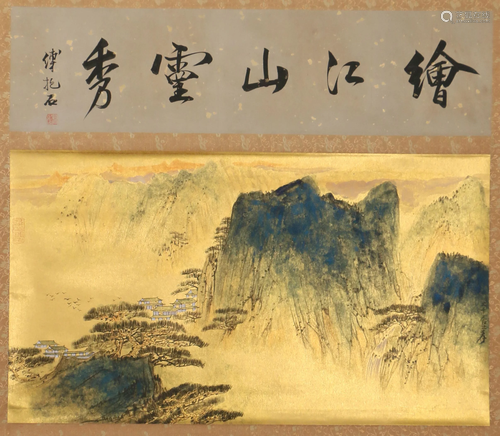 繪江山靈秀
傅抱石